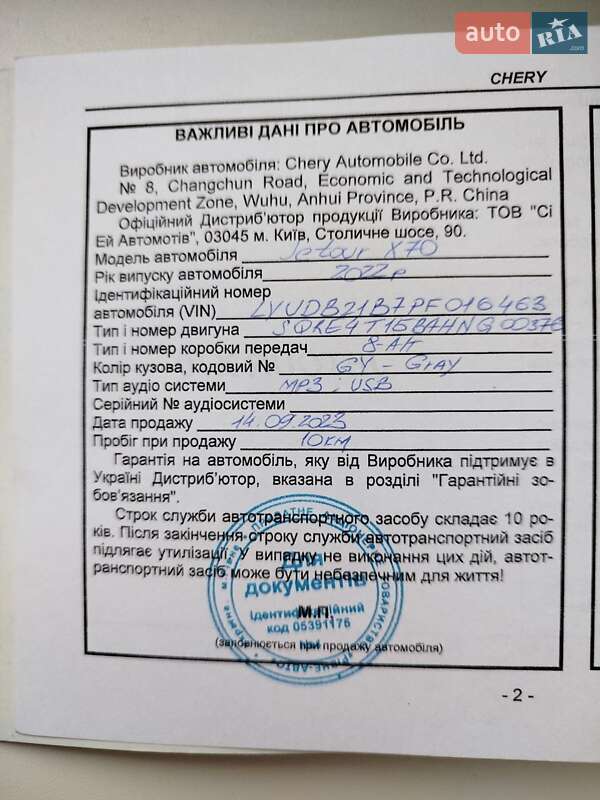 auto RIA .com
CHERY
ВАЖЛИВІ ДАНІ ПРО АВТОМОБІЛЬ
Виробник автомобіля: Chery Automobile Co. Ltd.
№ 8, Changchun Road, Economic and Technological
Development Zone, Wuhu, Anhui Province, P.R. China
Офіційний Дистриб'ютор продукції Виробника: ТОВ "Сі
Ей Автомотів", 03045 м. Київ, Столичне шосе, 90.
Модель автомобіля Jetour X70
Рік випуску автомобіля 2022р
Ідентифікаційний номер
автомобіля (VIN) LVUDB21B7PF016463
Тип і номер двигуна SQRE4T16BAHNG00376
Тип і номер коробки передач 8-АТ
Колір кузова, кодовий № GY - Gray
Тип аудіо системи MP3; USB
Серійний № аудіосистеми
Дата продажу 14.09.2023
Пробіг при продажу 10км
Гарантія на автомобіль, яку від Виробника підтримує в
Україні Дистриб'ютор, вказана в розділі "Гарантійні зо-
бов'язання".
Строк служби автотранспортного засобу складає 10 ро-
ків. Після закінчення строку служби автотранспортний засіб
підлягає утилізації. У випадку не виконання цих дій, автот-
ранспортний засіб може бути небезпечним для життя!
Для
документів
М.П.
Ідентифікаційний
код 05391176
(заповнюється при продажу автомобіля)
- 2 -